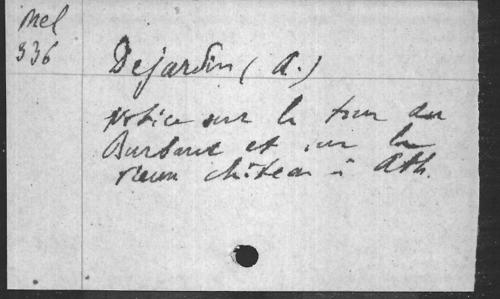 Mel
336
Dejardin (A.)
Notice sur la tour du
Burbant et sur le
vieux château à Ath.